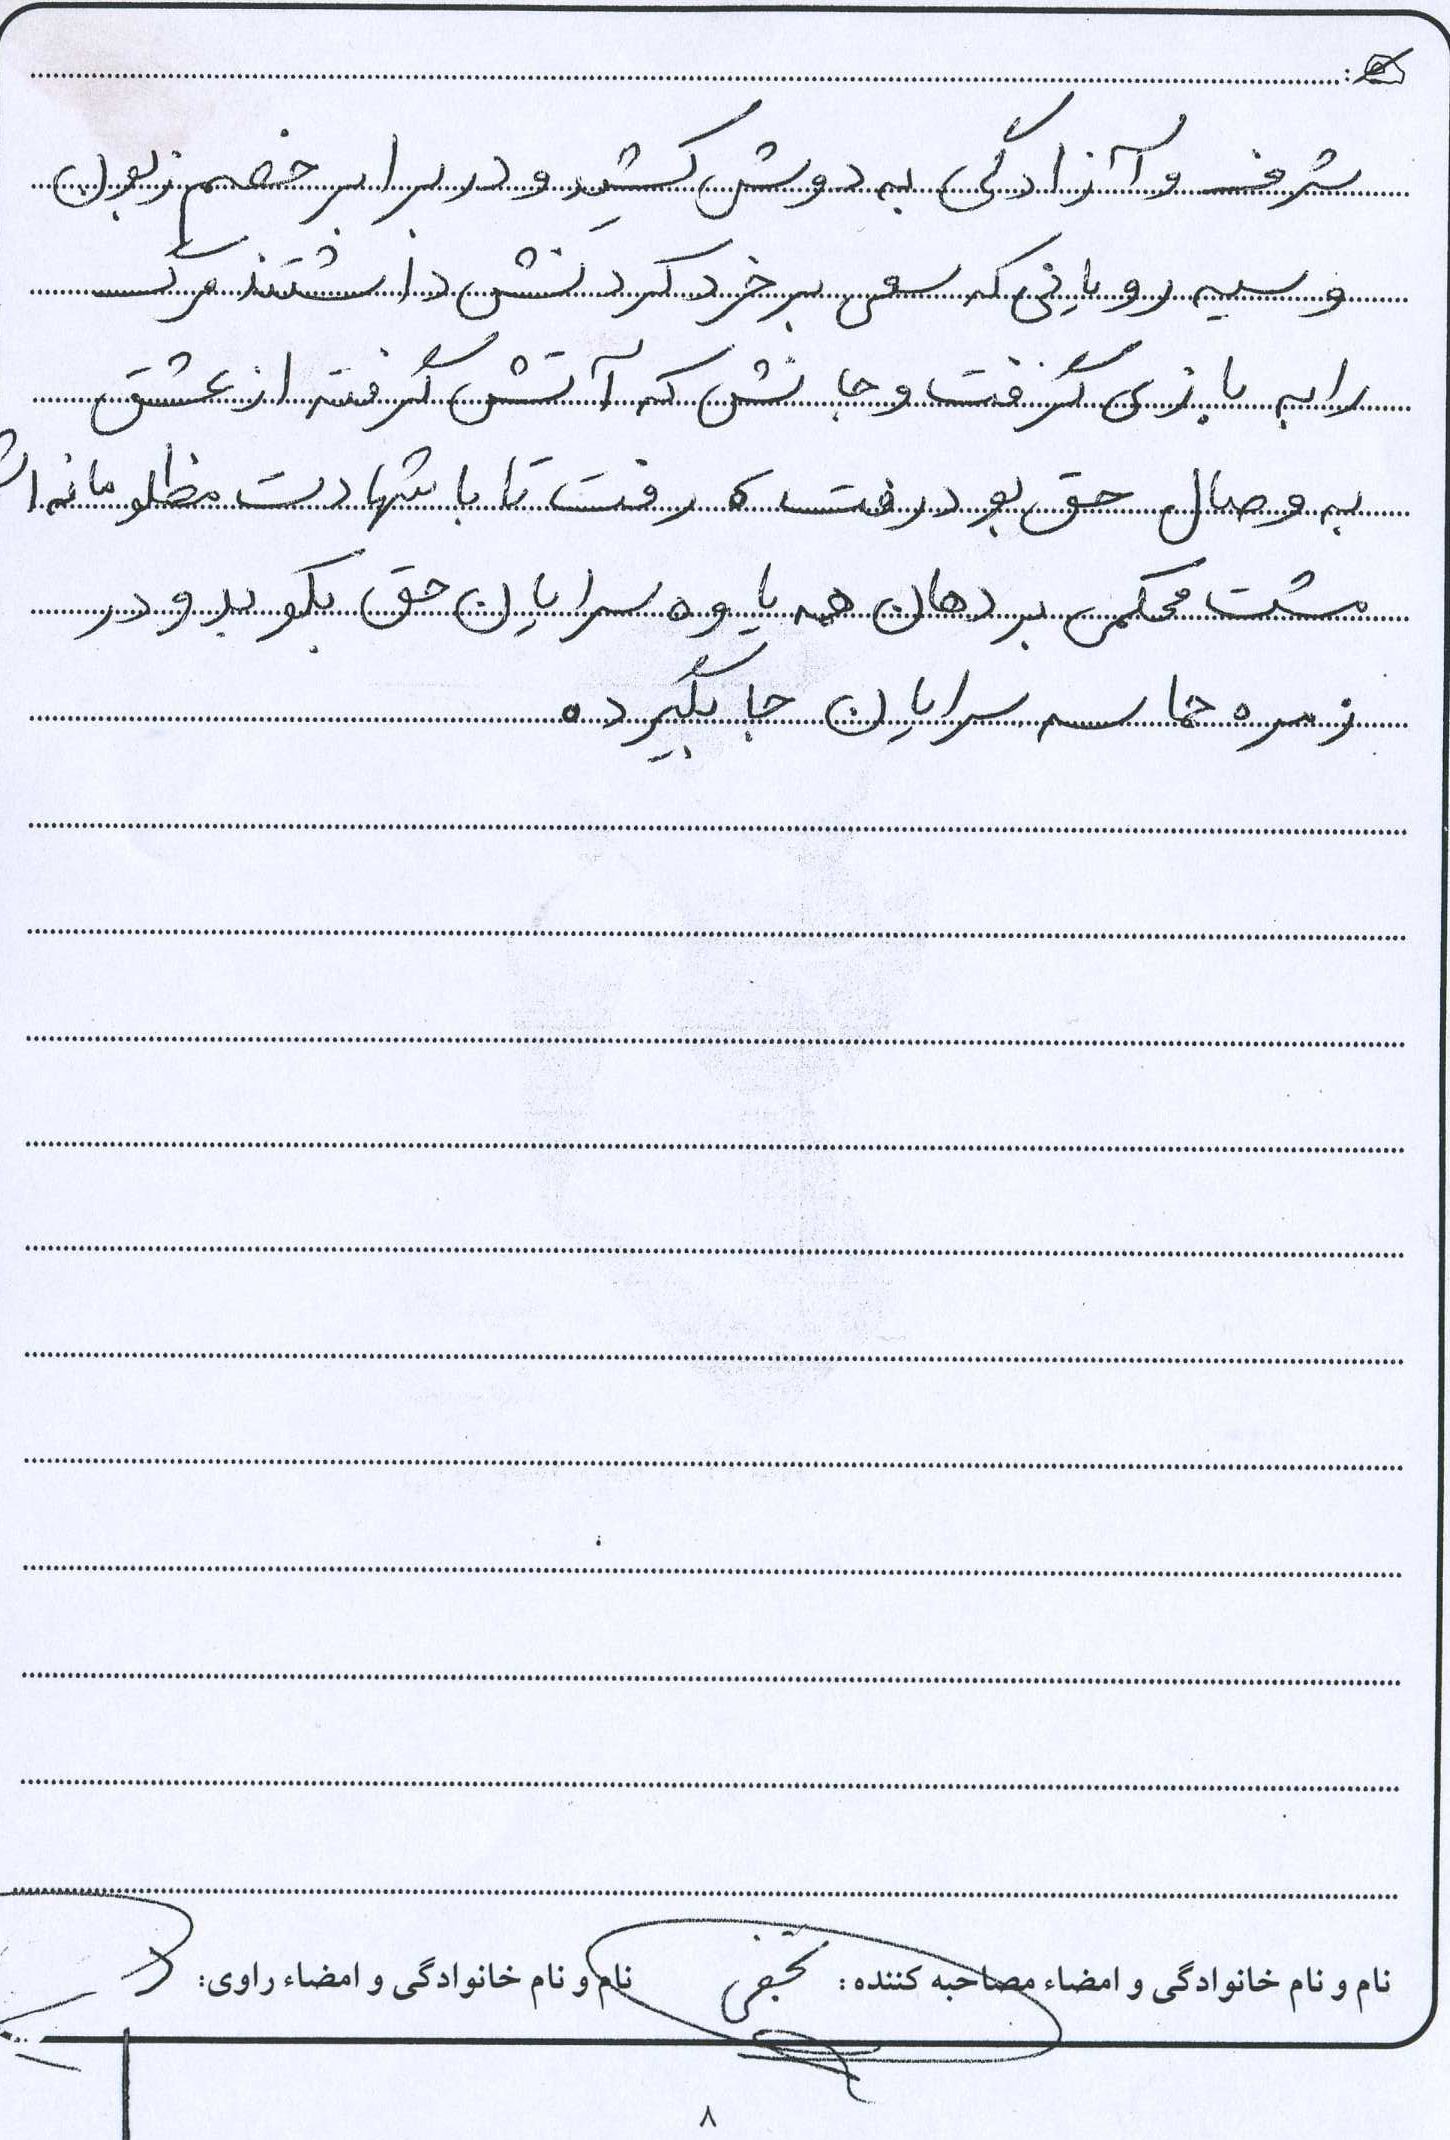 شرف و آزادگی به دوش کشید و در برابر خصم زبون
و سیه رویانی که سعی بر خرد کردنش داشتند مرگ
را به بازی گرفت و جانش که آتش گرفته از عشق
به وصال حق بود رفت، رفت تا با شهادت مظلومانه اش
مشت محکمی بر دهان همه یاوه سرایان حق بکوبد و در
زمره حماسه سرایان جا بگیرد.
نام و نام خانوادگی و امضاء مصاحبه کننده: نجفی نام و نام خانوادگی و امضاء راوی:
۸